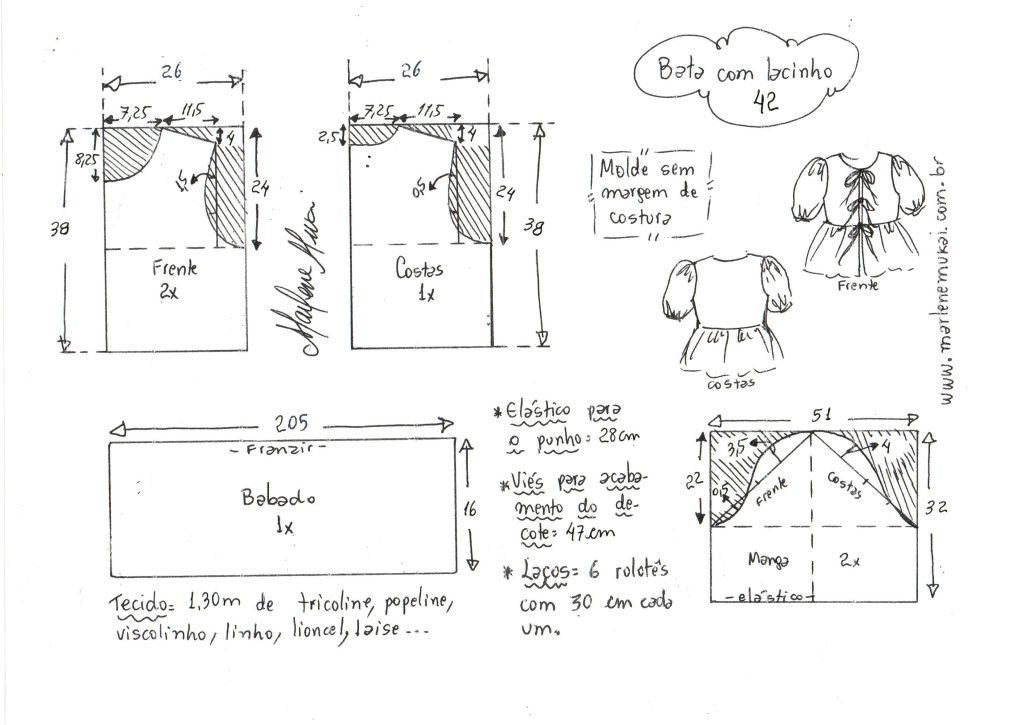 Bata com lacinho
42
Molde sem
margem de
costura
Frente
costas
www.marlenemukai.com.br
26
7,25
11,5
4
8,25
38
24
Frente
2x
26
7,25
11,5
4
2,5
24
38
Costas
1x
205
- Franzir -
Babado
1x
16
Tecido= 1,30m de tricoline, popeline,
viscolinho, linho, lioncel, laise ...
* Elástico para
o punho= 28cm
* Viés para acaba-
mento do de-
cote= 47cm
* Laços= 6 rolotês
com 30 cm cada
um.
51
3,5
4
22
0,5
Frente
Costas
32
Manga 2x
- elástico -